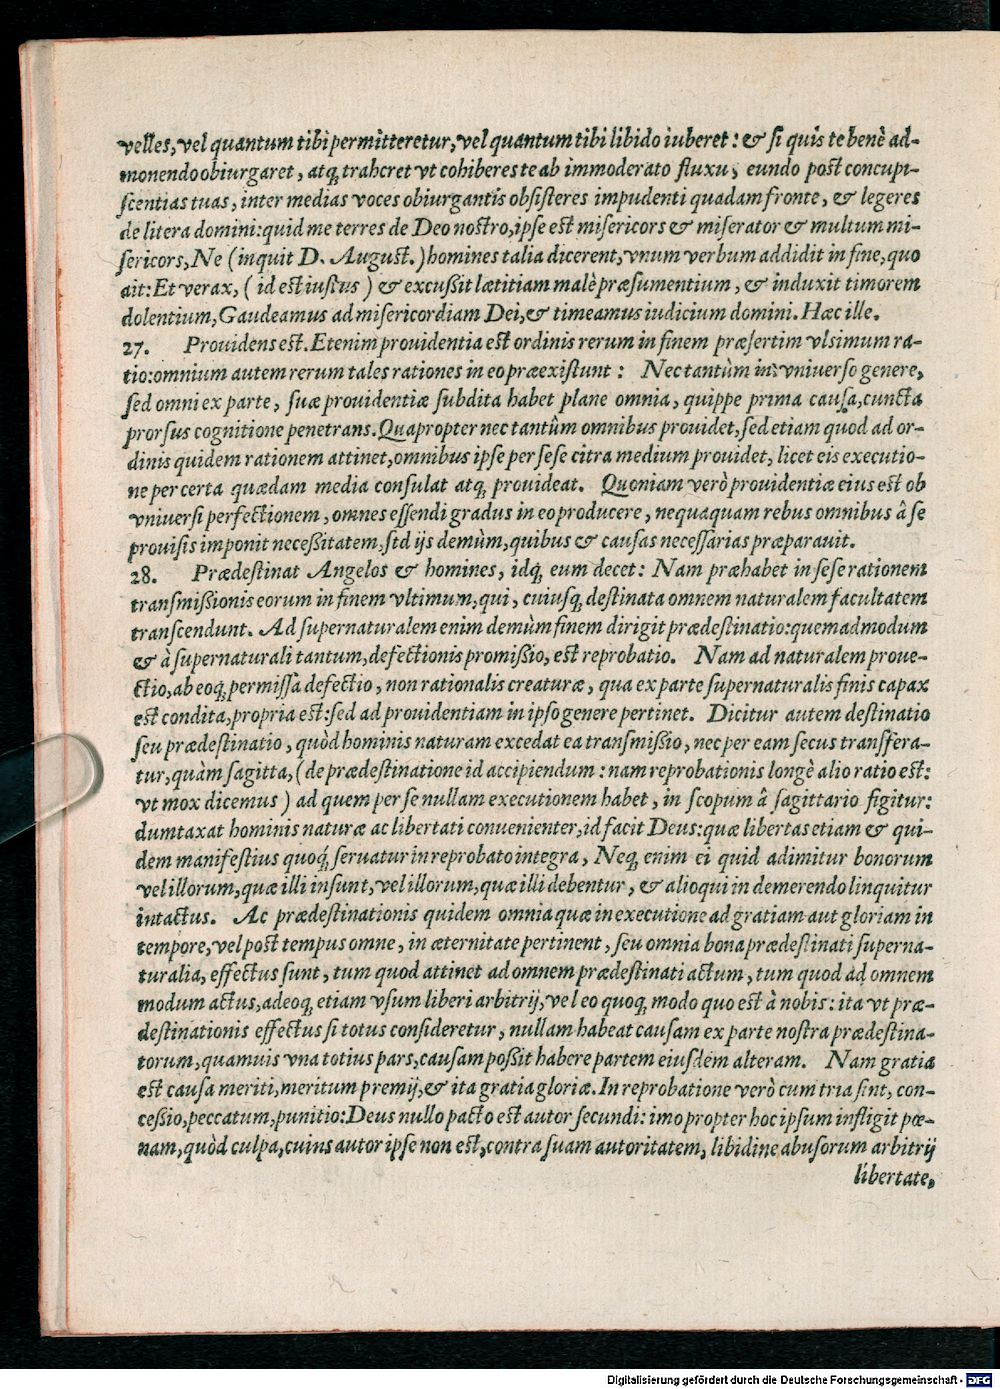 velles, vel quantum tibi permitteretur, vel quantum tibi libido iuberet: & si quis te benè ad-
monendo obiurgaret, atq; trahcret vt cohiberes te ab immoderato fluxu, eundo post concupi-
scentias tuas, inter medias voces obiurgantis obsisteres impudenti quadam fronte, & legeres
de litera domini: quid me terres de Deo nostro, ipse est misericors & miserator & multum mi-
sericors, Ne (inquit D. August.) homines talia dicerent, vnum verbum addidit in fine, quo
ait: Et verax, (id est iustus) & excußit lætitiam malè præsumentium, & induxit timorem
dolentium, Gaudeamus ad misericordiam Dei, & timeamus iudicium domini. Hæc ille.
27. Prouidens est. Etenim prouidentia est ordinis rerum in finem præsertim vlsimum ra-
tio: omnium autem rerum tales rationes in eo præexistunt: Nec tantùm in vniuerso genere,
sed omni ex parte, suæ prouidentiæ subdita habet plane omnia, quippe prima causa, cuncta
prorsus cognitione penetrans. Quapropter nec tantùm omnibus prouidet, sed etiam quod ad or-
dinis quidem rationem attinet, omnibus ipse per sese citra medium prouidet, licet eis executio-
ne per certa quædam media consulat atq; prouideat. Quoniam verò prouidentiæ eius est ob
vniuersi perfectionem, omnes essendi gradus in eo producere, nequaquam rebus omnibus â se
prouisis imponit neceßitatem, std ijs demùm, quibus & causas necessarias præparauit.
28. Prædestinat Angelos & homines, idq; eum decet: Nam præhabet in sese rationem
transmißionis eorum in finem vltimum, qui, cuiusq; destinata omnem naturalem facultatem
transcendunt. Ad supernaturalem enim demùm finem dirigit prædestinatio: quemadmodum
& à supernaturali tantum, defectionis promißio, est reprobatio. Nam ad naturalem proue-
ctio, ab eoq; permissa defectio, non rationalis creaturæ, qua ex parte supernaturalis finis capax
est condita, propria est: sed ad prouidentiam in ipso genere pertinet. Dicitur autem destinatio
seu prædestinatio, quòd hominis naturam excedat ea transmißio, nec per eam secus transfera-
tur, quàm sagitta, (de prædestinatione id accipiendum: nam reprobationis longè alio ratio est:
vt mox dicemus) ad quem per se nullam executionem habet, in scopum â sagittario figitur:
dumtaxat hominis naturæ ac libertati conuenienter, id facit Deus: quæ libertas etiam & qui-
dem manifestius quoq; seruatur in reprobato integra, Neq; enim ei quid adimitur bonorum
vel illorum, quæ illi insunt, vel illorum, quæ illi debentur, & alioqui in demerendo linquitur
intactus. Ac prædestinationis quidem omnia quæ in executione ad gratiam aut gloriam in
tempore, vel post tempus omne, in æternitate pertinent, seu omnia bona prædestinati superna-
turalia, effectus sunt, tum quod attinet ad omnem prædestinati actum, tum quod ad omnem
modum actus, adeoq; etiam vsum liberi arbitrij, vel eo quoq; modo quo est à nobis: ita vt præ-
destinationis effectus si totus consideretur, nullam habeat causam ex parte nostra prædestina-
torum, quamuis vna totius pars, causam poßit habere partem eiusdem alteram. Nam gratia
est causa meriti, meritum premij, & ita gratia gloriæ. In reprobatione verò cum tria sint, con-
ceßio, peccatum, punitio: Deus nullo pacto est autor secundi: imo propter hoc ipsum infligit pœ-
nam, quòd culpa, cuius autor ipse non est, contra suam autoritatem, libidine abusorum arbitrij
libertate,
Digitalisierung gefördert durch die Deutsche Forschungsgemeinschaft - DFG